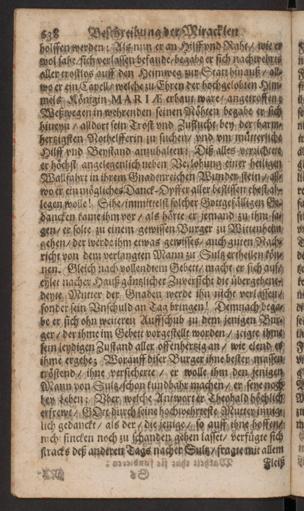 638 Beschreibung der Miracklen
holffen werden: Als nun er an Hilff und Raht/ wie er
wol sahe/ sich verlassen befande/ begabe er sich nachwehrts
aller trostlos auff den Heimweg zur Statt hinauß/ all-
wo er ein Capell/ welche zu Ehren der hochgelobten Him-
mels Königin MARIÆ erbaut ware/ angetroffen:
Weßwegen in wehrenden seinen Nöhten begabe er sich
hinein/ alldort sein Trost und Zuflucht bey der barm-
hertzigsten Nothelfferin zu suchen/ und um mütterliche
Hilff und Beystand anzuhalten: Diß alles verrichtet
er höchst angelegenlich neben Verlobung einer heiligen
Wallfahrt in ihrem Gnadenreichen Wunder-stein/ all-
wo er ein mögliches Danck-Opffer aller bestissen ehest ab-
legen wolle! Sihe/ immittelst solcher Gottgefälligen Ge-
dancken kame ihm vor/ als hörte er jemand zu ihm sa-
gen/ er solte zu einem gewissen Burger zu Wittenheim
gehen/ der werde ihm etwas gewisses/ auch guten Nach-
richt von dem verlangten Mann zu Sulz ertheilen kön-
nen. Gleich nach vollendtem Gebett/ macht er sich auff
eyler nacher Hauß gäntzlicher Zuversicht die übergebene-
deyte Mutter der Gnaden werde ihn nicht verlassen/
sonder sein Unschuld an Tag bringen! Demnach bega-
be er sich ohn weiteren Auffschub zu dem jenigen Bur-
ger/ der ihme im Gebett vorgestellt worden/ zeigte ihme
sein leydigen Zustand aller offenhertzig an/ wie elend es
ihme ergehe: Worauff diser Burger ihne bester massen
tröstend/ ihne versicherte/ er wolle ihm den jenigen
Mann von Sulz schon kundbahr machen/ er seye noch
bey leben: Uber welche Antwort er Theobald höchlich
erfrewt/ GOtt durch seine hochwehrteste Mutter innig-
lich gedanckt/ als der/ die jenige/ so auff ihne hoffen/
nich sincken noch zu schanden gehen lasset/ verfügte sich
stracks deß anderen Tags nacher Sulz/ fragte mit allem
Fleiß